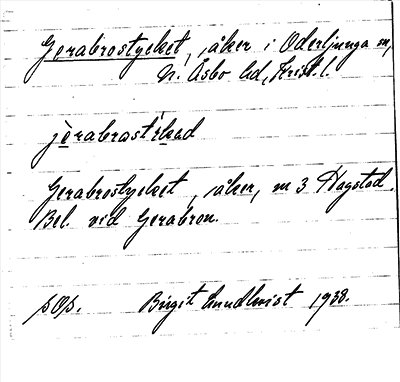 Gerabrostycket, åker i Oderljunga sn,
N. Åsbo hd, Krist. l.
jèrabrast'ekad
Gerabrostycket, åker, nr 3 Hagstad.
Bel. vid Gerabron.
sOs. Birgit Lundkvist 1938.